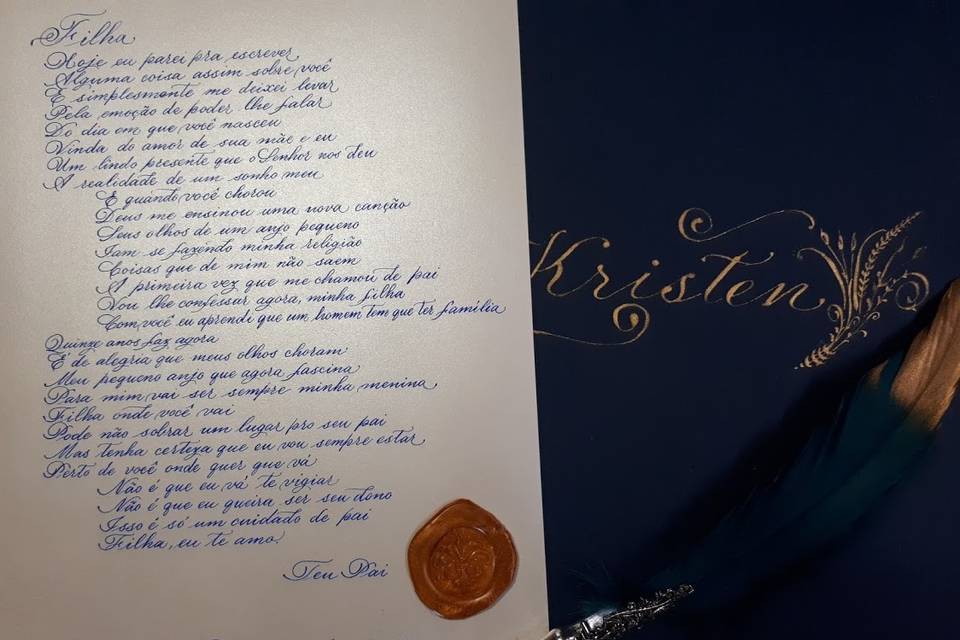 Filha
Hoje eu parei pra escrever
Alguma coisa assim sobre você
E simplesmente me deixei levar
Pela emoção de poder lhe falar
Do dia em que você nasceu
Vinda do amor de sua mãe e eu
Um lindo presente que o Senhor nos deu
A realidade de um sonho meu
E quando você chorou
Deus me ensinou uma nova canção
Seus olhos de um anjo pequeno
Iam se fazendo minha religião
Coisas que de mim não saem
A primeira vez que me chamou de pai
Vou lhe confessar agora, minha filha
Com você eu aprendi que um homem tem que ter família
Quinze anos faz agora
E de alegria que meus olhos choram
Meu pequeno anjo que agora fascina
Para mim vai ser sempre minha menina
Filha onde você vai
Pode não sobrar um lugar pro seu pai
Mas tenha certeza que eu vou sempre estar
Perto de você onde quer que vá
Não é que eu vá te vigiar
Não é que eu queira ser seu dono
Isso é só um cuidado de pai
Filha, eu te amo.
Teu Pai
Kristen